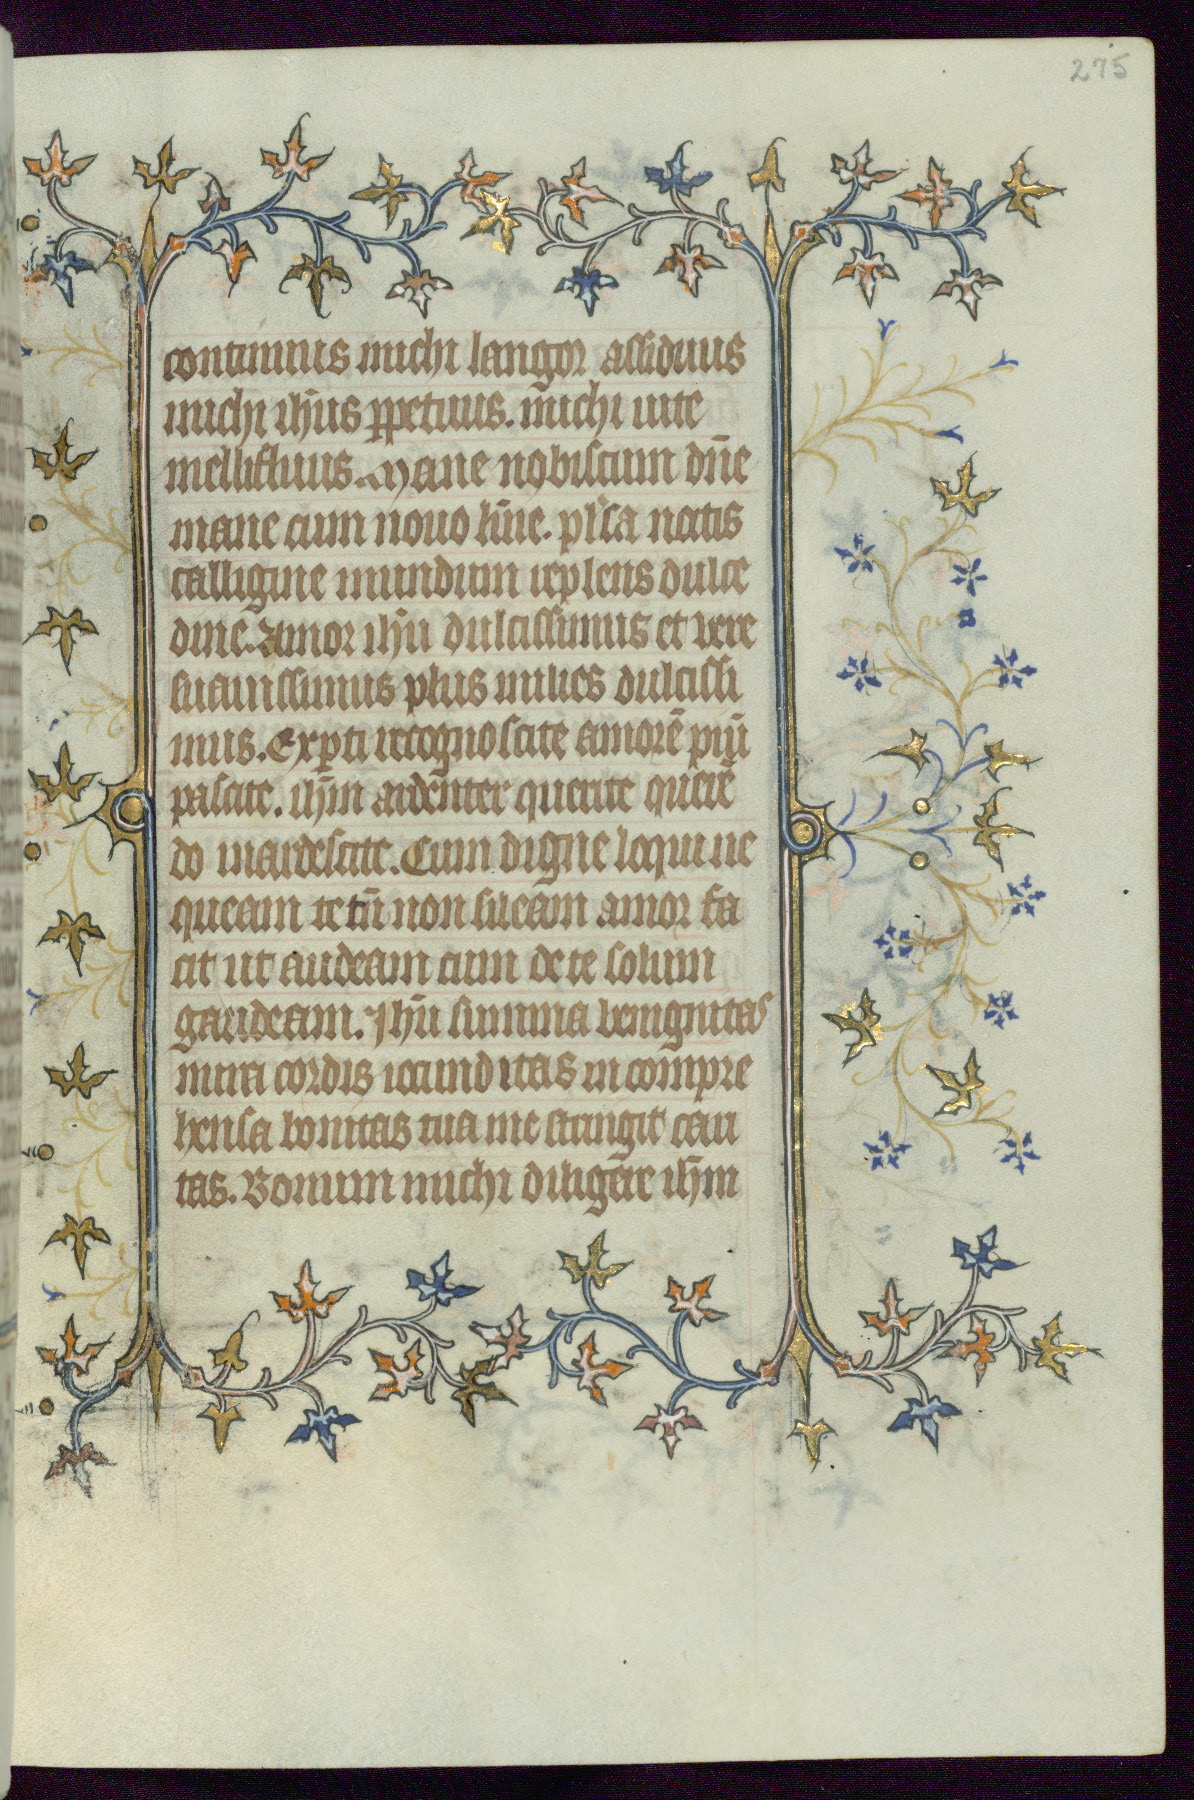 275
continuus michi langor assiduus
michi ihūs ꝑpetuus. michi uite
mellifluus. Mane nobiscum dn̄e
mane cum nouo lūne. pulsa noctis
calligine mundum replens dulce
dine. Amor ihū dulcissimus et vere
suauissimus plus milies dulcissi
mus. Experti recognoscite amorē piū
pascite. ihm̄ ardenter querite querē
do inardescite. Cum digne loqui ne
queam te tn̄ non sileam amor fa
cit ut audeam cum de te solum
gaudeam. Ihū summa benignitas
mira cordis iocunditas in compre
hensa bonitas tua me stringit cari
tas. Bonum michi diligere ihm̄